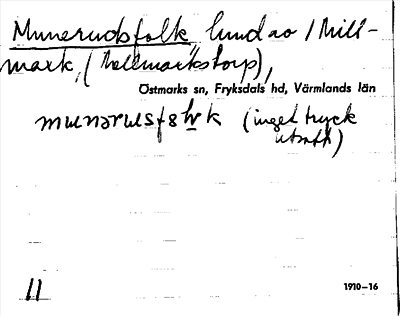 Munerudsfolk hundao / Mill-
mark, (Mellmarkstorp),
Östmarks sn, Fryksdals hd, Värmlands län
(inget tryck
utsatt)
11
1910–16